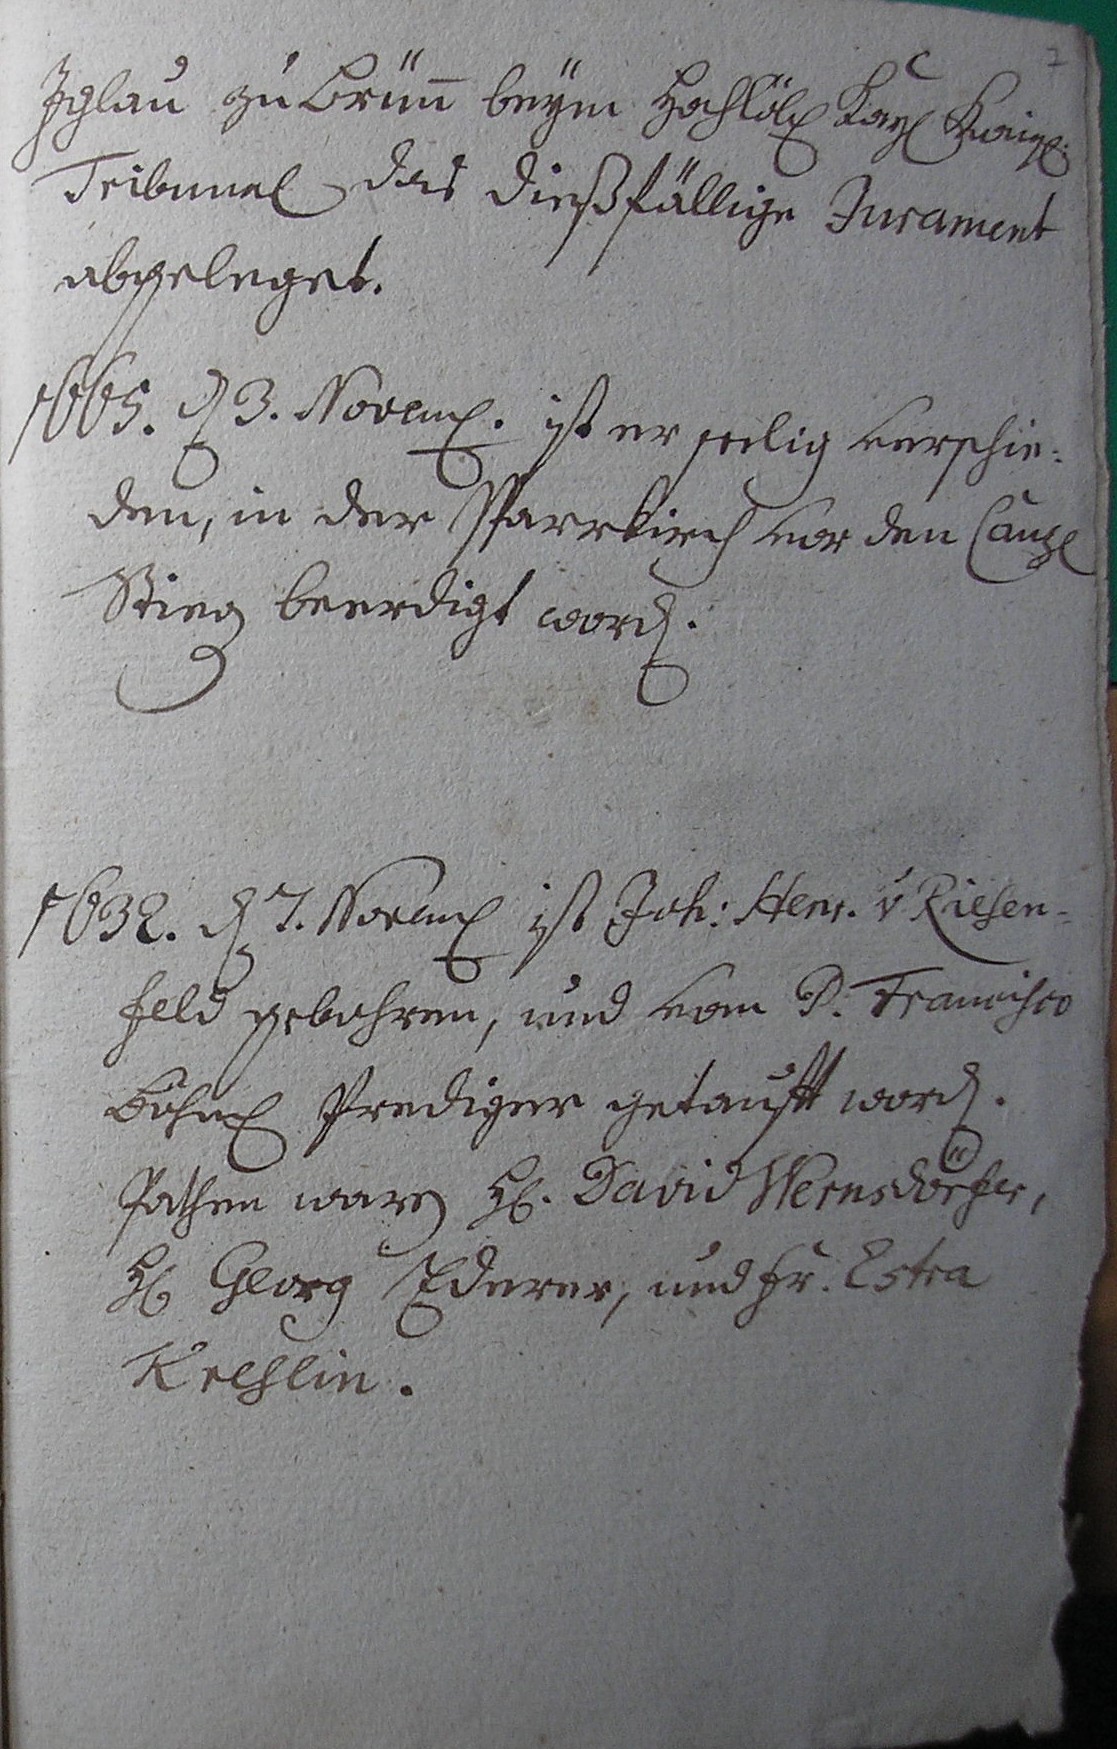 7
Iglau zu Brünn beÿm Hochlöbl Kaÿl Königl:
Tribunal das dießfällige Jurament
abgeleget.
1665. d 3. Novemb. ist er seelig verschie-
den, in der Pfarrkirch vor den Canzl
Stieg beerdigt word.
1632. d 7. Novemb ist Joh: Henr. v Riesen-
feld gebohren, und vom P. Francisco
Böhm Prediger getaufft word.
Pathen waren H. David Wernsdörfer,
H Georg Ederer, und Fr. Estra
Kechlin.